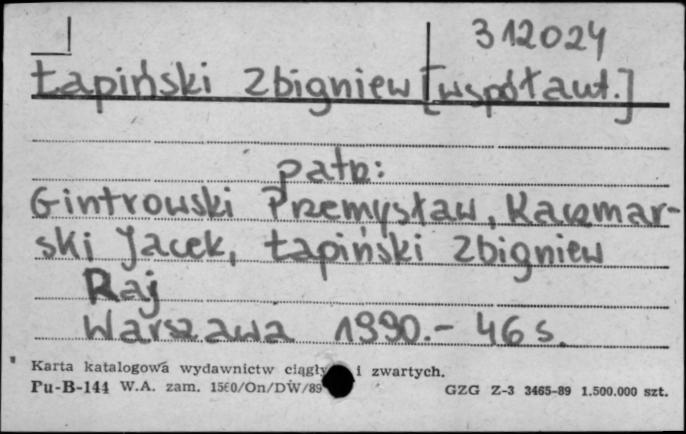 312024
Łapiński Zbigniew [współaut.]
patrz:
Gintrowski Przemysław, Kaczmar-
ski Jacek, Łapiński Zbigniew
Raj
Warszawa 1990.- 46 s.
Karta katalogowa wydawnictw ciągły i zwartych.
Pu-B-144 W.A. zam. 1560/On/DW/89 GZG Z-3 3465-89 1.500.000 szt.